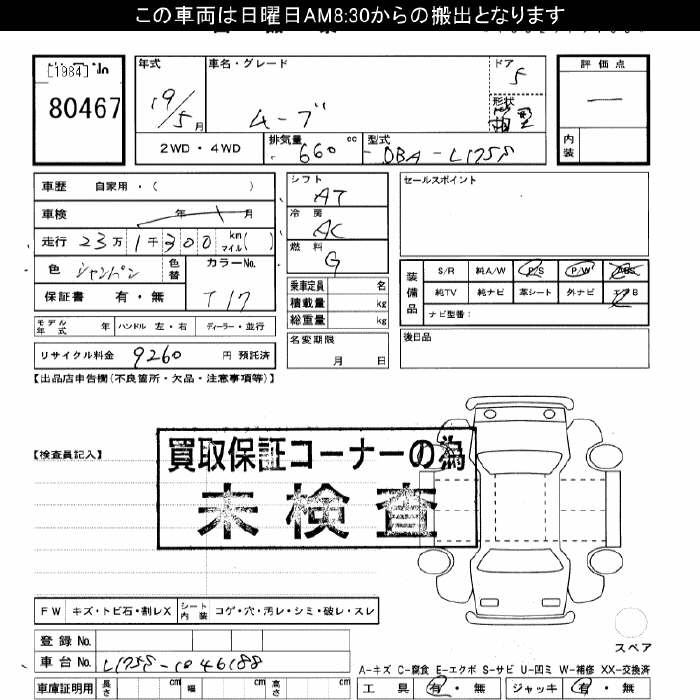 この車両は日曜日AM8:30からの搬出となります
[1984] No
80467
年式
19/5月
車名・グレード
ムーブ
ドア
5
形状
箱型
評価点
―
内装
2WD・4WD
排気量
660 cc
型式
DBA-L175S
車歴 自家用・( )
車検 年 月
走行 23万1千300 km マイル( )
色 シャンパン
色替
カラーNo.
T17
保証書 有・無
モデル年式 年 ハンドル 左・右 ディーラー・並行
リサイクル料金 9260 円 預託済
シフト
AT
冷房
AC
燃料
G
乗車定員 名
積載量 kg
総重量 kg
名変期限
月 日
セールスポイント
装備品
S/R 純A/W P/S P/W ABS
純TV 純ナビ 革シート 外ナビ エアB
ナビ型番:
後日品
【出品店申告欄(不良箇所・欠品・注意事項等)】
【検査員記入】
買取保証コーナーの為
未検査
FW キズ・トビ石・割レX シート内装 コゲ・穴・汚レ・シミ・破レ・スレ
登録No.
車台No. L175S-1046188
車庫証明用 長さ cm 幅 cm 高さ cm
スペア
A-キズ C-腐食 E-エクボ S-サビ U-凹ミ W-補修 XX-交換済
工具 有・無 ジャッキ 有・無